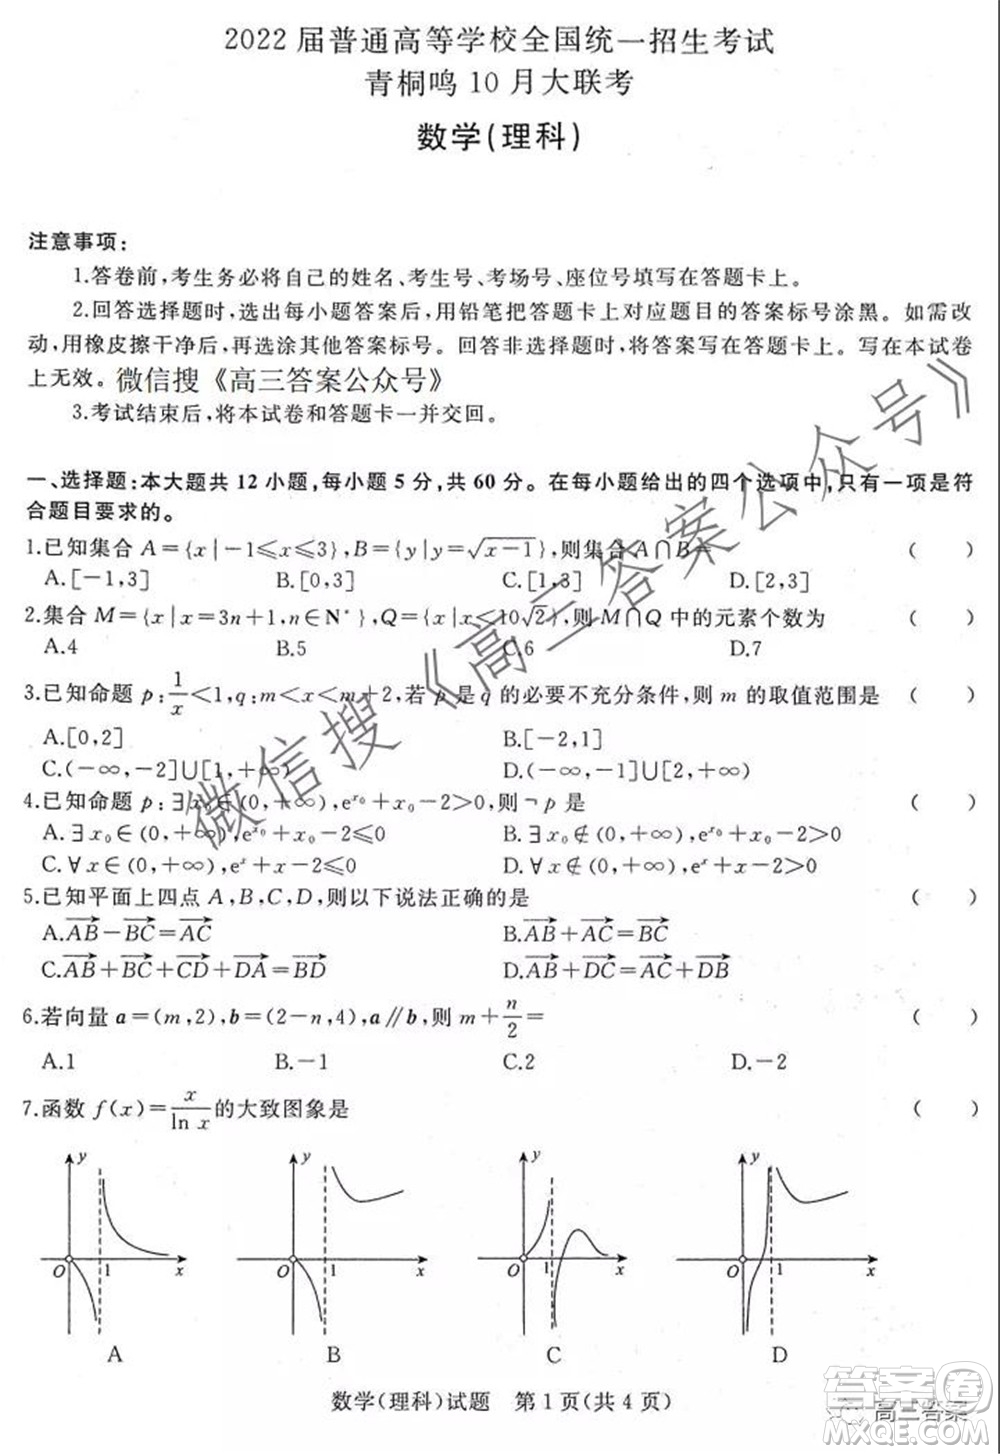 2022 届普通高等学校全国统一招生考试
青桐鸣 10 月大联考
数学(理科)
注意事项:
1.答卷前,考生务必将自己的姓名、考生号、考场号、座位号填写在答题卡上。
2.回答选择题时,选出每小题答案后,用铅笔把答题卡上对应题目的答案标号涂黑。如需改
动,用橡皮擦干净后,再选涂其他答案标号。回答非选择题时,将答案写在答题卡上。写在本试卷
上无效。微信搜《高三答案公众号》
3.考试结束后,将本试卷和答题卡一并交回。
微信搜《高三答案公众号》
一、选择题:本大题共 12 小题,每小题 5 分,共 60 分。在每小题给出的四个选项中,只有一项是符
合题目要求的。
1.已知集合 A={x|-1≤x≤3},B={y|y=√(x-1)},则集合 A∩B= ( )
A.[-1,3] B.[0,3] C.[1,3] D.[2,3]
2.集合 M={x|x=3n+1,n∈N*},Q={x|x≤10√2},则 M∩Q 中的元素个数为 ( )
A.4 B.5 C.6 D.7
3.已知命题 p:1/x<1,q:m<x<m+2,若 p 是 q 的必要不充分条件,则 m 的取值范围是 ( )
A.[0,2] B.[-2,1]
C.(-∞,-2]∪[1,+∞) D.(-∞,-2]∪[2,+∞)
4.已知命题 p:∃x₀∈(0,+∞),e^x₀+x₀-2>0,则¬p 是 ( )
A.∃x₀∈(0,+∞),e^x₀+x₀-2≤0 B.∃x₀∉(0,+∞),e^x₀+x₀-2>0
C.∀x∈(0,+∞),e^x+x-2≤0 D.∀x∉(0,+∞),e^x+x-2≤0
5.已知平面上四点 A,B,C,D,则以下说法正确的是 ( )
A.AB→-BC→=AC→ B.AB→+AC→=BC→
C.AB→+BC→+CD→+DA→=BD→ D.AB→+DC→=AC→+DB→
6.若向量 a=(m,2),b=(2-n,4),a∥b,则 m+n/2= ( )
A.1 B.-1 C.2 D.-2
7.函数 f(x)=x/ln x 的大致图象是 ( )
y y y y
O 1 x O 1 x O 1 x O 1 x
A B C D
数学(理科)试题 第 1 页(共 4 页)
答案圈
高三答案
MXQE.COM